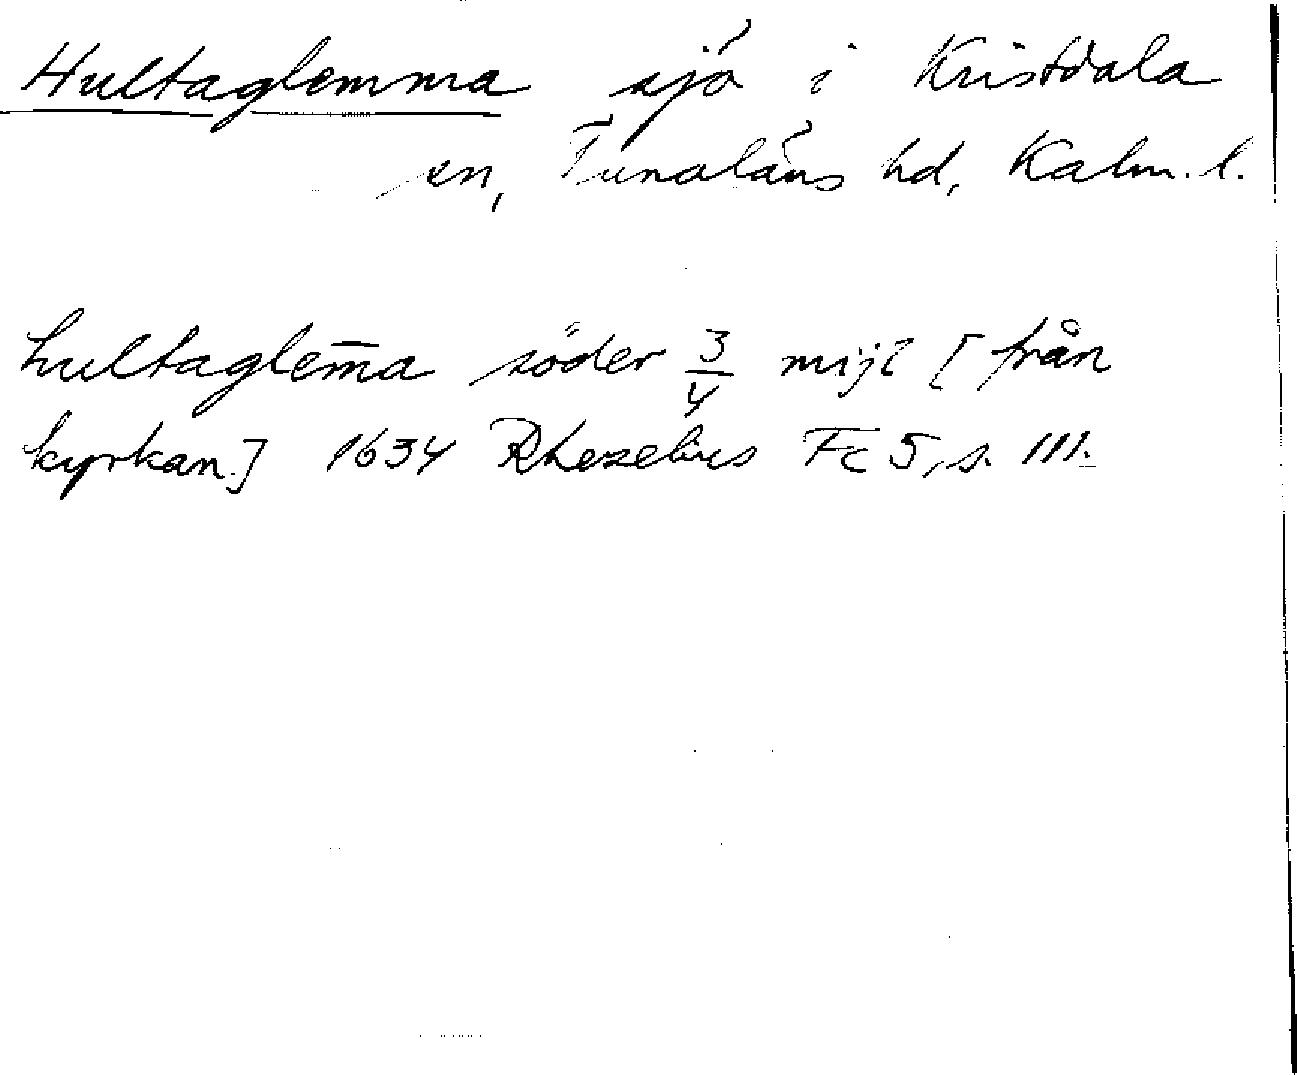 Hultaglemma sjö i Kristdala
sn, Tunaläns hd, Kalm. l.
hultaglem̄a söder 3/4 mijl [från
kyrkan.] 1634 Rhezelius Fc 5, s. 111.